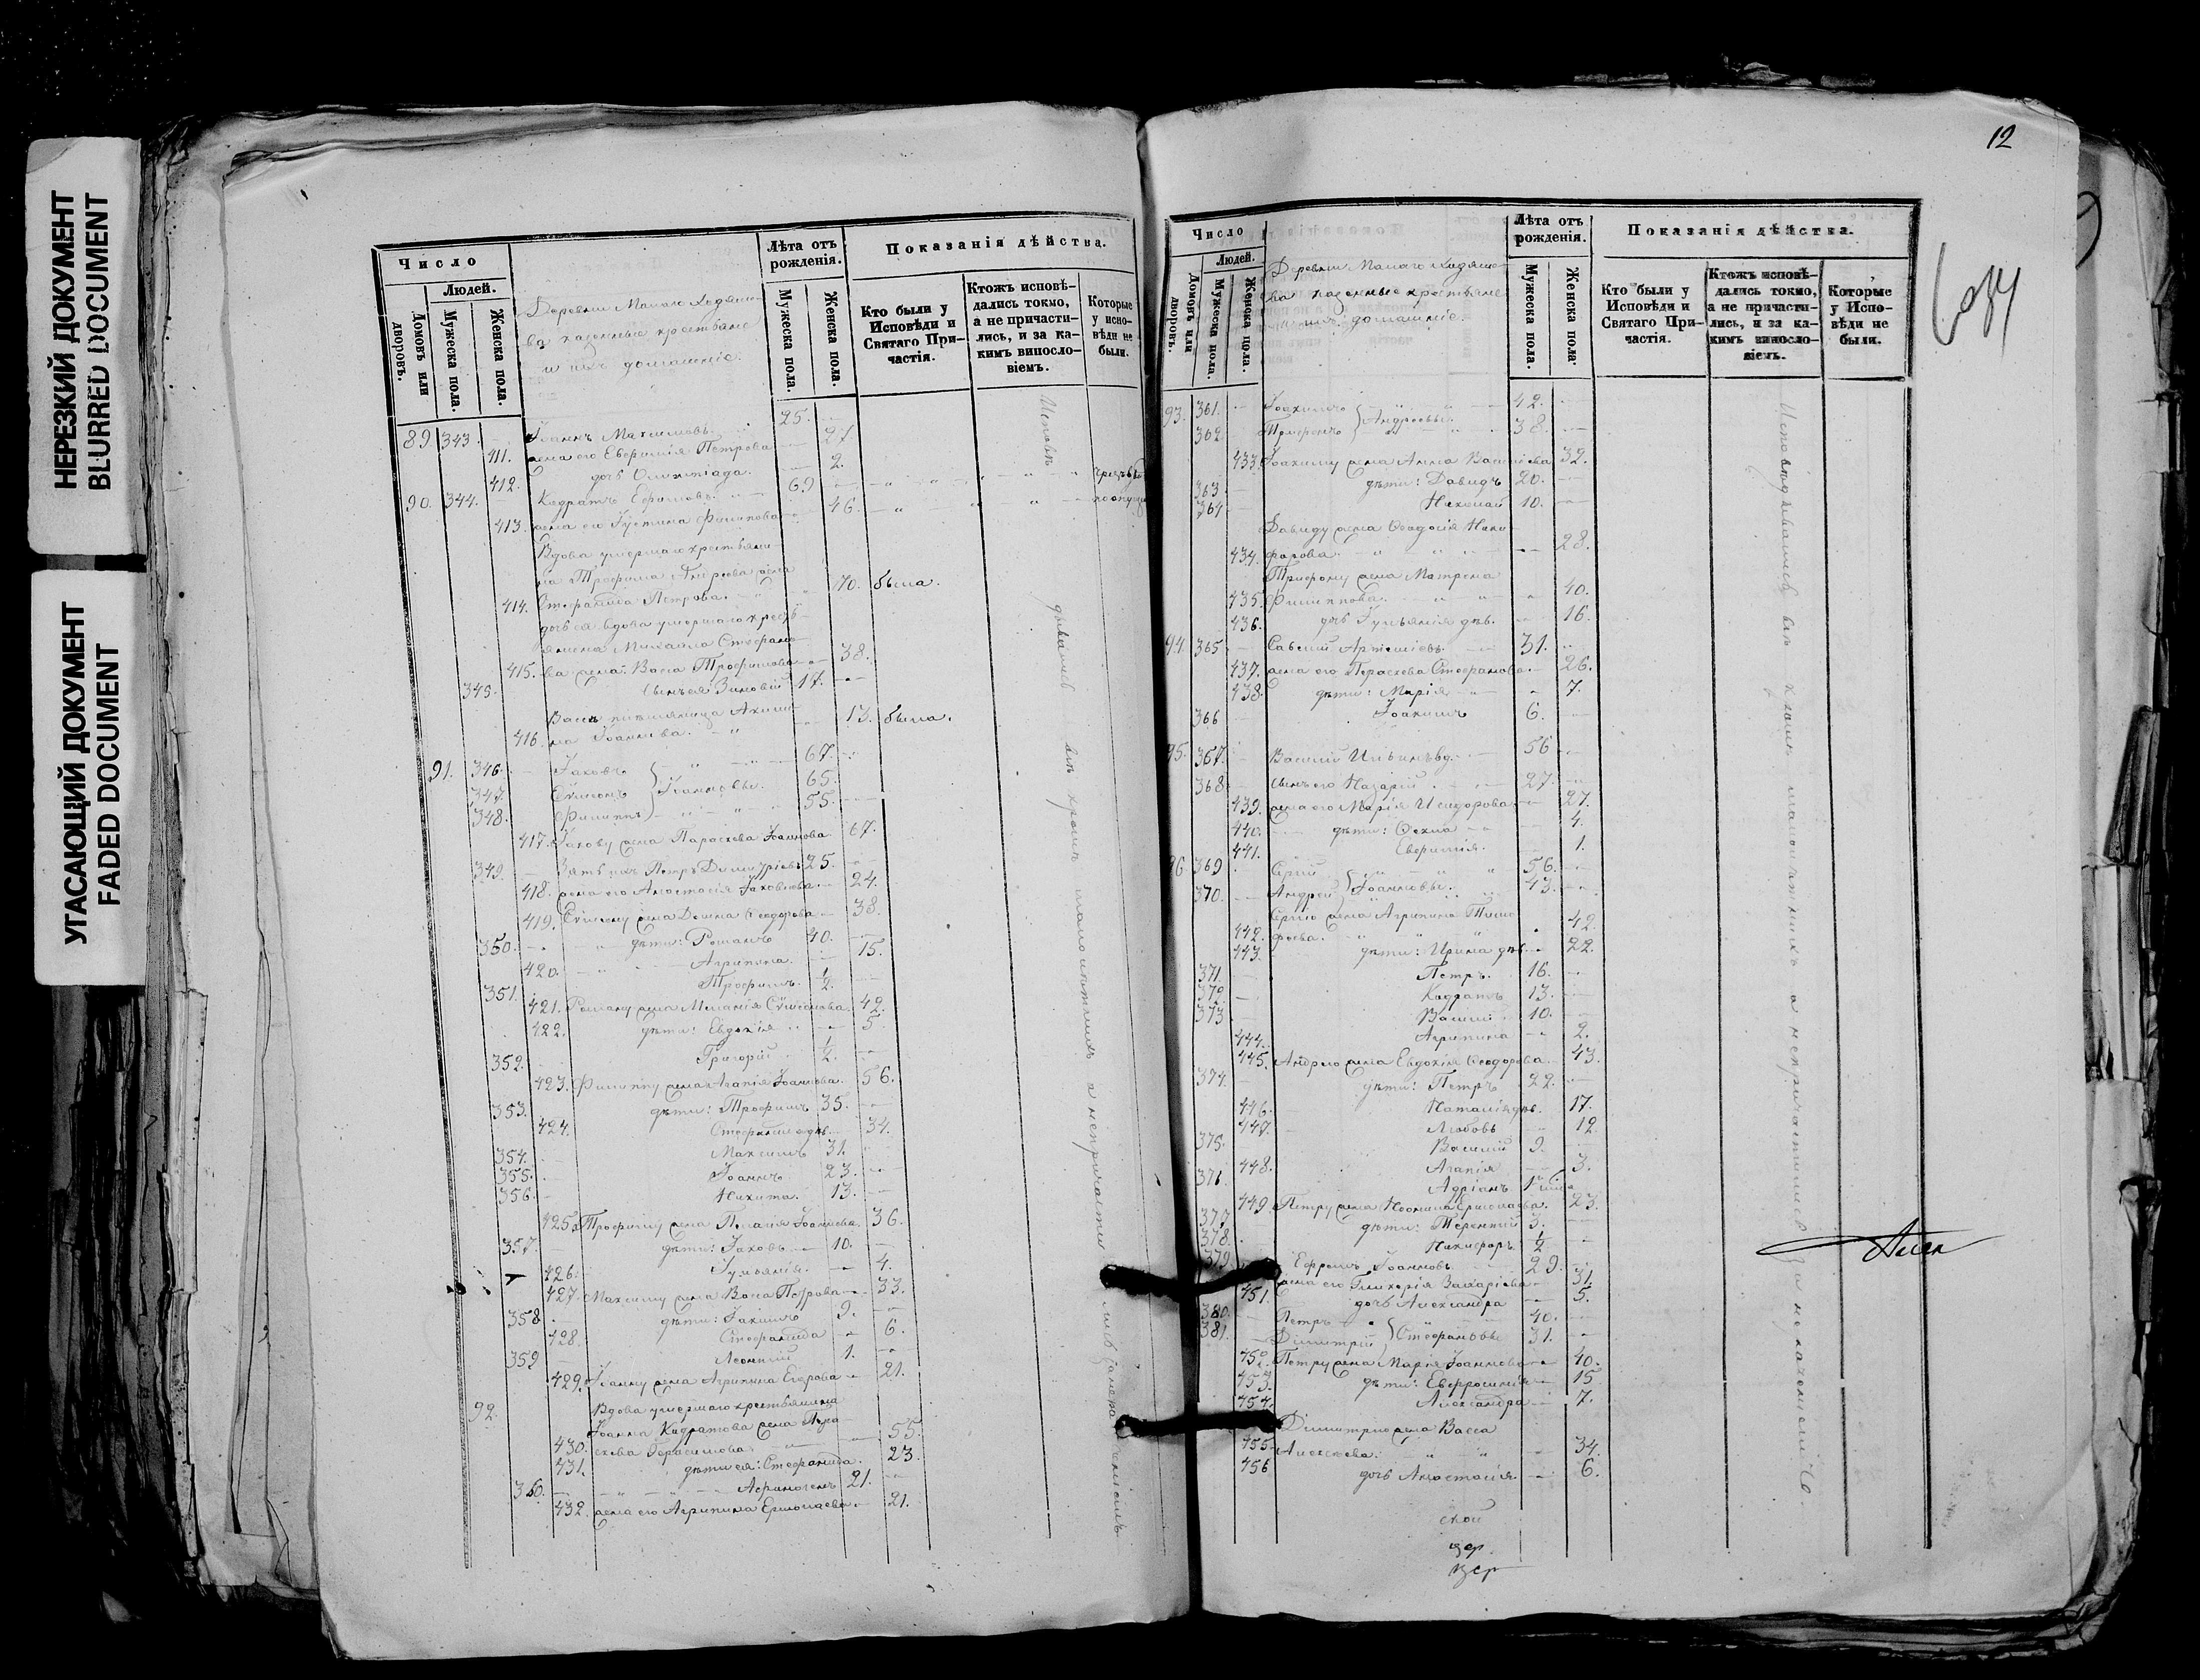 НЕРЕЗКИЙ ДОКУМЕНТ
BLURRED DOCUMENT
УГАСАЮЩИЙ ДОКУМЕНТ
FADED DOCUMENT
Число
Людей.
Домовъ или дворовъ.
Мужеска пола.
Женска пола.
Деревни Малаго Хидяше-
ва казенные крестьяне
и ихъ домашніе.
Лѣта отъ рожденія.
Мужеска пола.
Женска пола.
Показанія дѣйства.
Кто были у Исповѣди и Святаго При-частія.
Ктожъ исповѣ-дались токмо, а не причасти-лись, и за ка-кимъ винословіемъ.
Которые у испо-вѣди не были.
89 343 Іоаннъ Максимовъ 25.
411. жена его Евфимія Петрова 27
412. дочь Олимпіада 2.
90. 344. Кодратъ Ефимовъ 69
413. жена его Іустина Филипова 46.
Вдова умершаго крестьяни-
на Трофима Андреева жена
414. Стефанида Петрова 70. была.
дочь ея вдова умершаго кресть-
янина Михаила Стефано-
415. ва жена Васса Трофимова 38.
345. сынъ ея Зиновій 17.
416. на Іоаннова. 13. была.
91. 346. Іаковъ 67.
347. Сѵмеонъ } Іоанновы. 65.
348. Филиппъ 55.
417. Іакову жена Параскева Іоаннова 67.
349. Зять ихъ Петръ Димитріевъ 25.
418. жена его Анастасія Іаковлева 24.
419. Сѵмеону жена Домна Ѳеодорова 38.
350. дѣти: Романъ 40.
420. Агрипина 15.
351. Трофимъ ½.
421. Роману жена Меланія Сѵмеонова 42.
422. дѣти: Евдокія 5.
352. Григорій ½.
423. Филиппу жена Агапія Іоаннова. 56.
353. дѣти: Трофимъ 35.
424. Стефанида дѣв. 34.
354. Максимъ 31.
355. Іоаннъ 23.
356. Никита. 13.
425. Трофиму жена Пелагія Іоаннова 36.
357. дѣти: Іаковъ 10.
426. Іуліанія. 4.
427. Максиму жена Васса Петрова 33.
358 дѣти: Іакимъ 9.
428. Стефанида 6.
359 Леонтій 1.
429. Іоанну жена Агрипина Егорова 21.
92. Вдова умершаго крестьянина
Іоанна Кодратова жена Пара-
430. скева Герасимова 55.
431. дѣти ея: Стефанида. 23.
360. Афиногенъ 21.
432. жена его Агрипина Ермолаева 21.
12
Число
Людей.
Домовъ или дворовъ.
Мужеска пола.
Женска пола.
Деревни Малаго Хидяше-
ва казенные крестьяне
и ихъ домашніе.
Лѣта отъ рожденія.
Мужеска пола.
Женска пола.
Показанія дѣйства.
Кто были у Исповѣди и Святаго При-частія.
Ктожъ исповѣ-дались токмо, а не причасти-лись, и за ка-кимъ винословіемъ.
Которые у Испо-вѣди не были.
93. 361. Іоакимъ } Андреевы. 42.
362 Трифонъ 38.
433. Іоакиму жена Анна Васильева 32.
363 дѣти: Давидъ 20.
364 Николай 10.
Давиду жена Ѳеодосія Ники-
434. форова. 28.
Трифону жена Матрена
435. Филиппова. 40.
436. дочь Іуліанія дѣв. 16.
94. 365 Савелій Артемьевъ 31.
437. жена его Параскева Стефанова 26.
438. дѣти: Марія 7.
366 Іоакимъ 6.
95. 367. Василій Ильинъ 56
368 сынъ его Назарій 27.
439. жена его Марія Исидорова 27.
440. дѣти: Ѳекла 4.
441. Евфимія. 1.
96. 369 Сергій 56.
370. Андрей } Іоанновы. 43.
Сергію жена Агрипина Тимо-
442. феева. 42.
443. дѣти: Ирина дѣв. 22.
371. Петръ 16.
372. Кодратъ 13.
373 Василій 10.
444. Агрипина 2.
445. Андрею жена Евдокія Ѳеодорова 43.
374. дѣти: Петръ 22.
446. Наталія дѣв. 17.
447. Любовь 12.
375. Василій 9.
448. Агапія 3.
Адріанъ 1
449. Петру жена Неонила Ермолаева. 23.
377 дѣти: Терентій 3.
378. Никифоръ ½
379. Ефремъ Іоанновъ 29.
жена его Гликерія Захаріева 31.
451. дочь Александра 5.
380. Петръ 40.
381. Димитрій } Стефановы 31.
452. Петру жена Марія Іоаннова 40.
453. дѣти: Евфросинія 15
454. Александра 7.
Димитрію жена Васса
455. Алексѣева. 34.
456 дочь Анастасія 6.